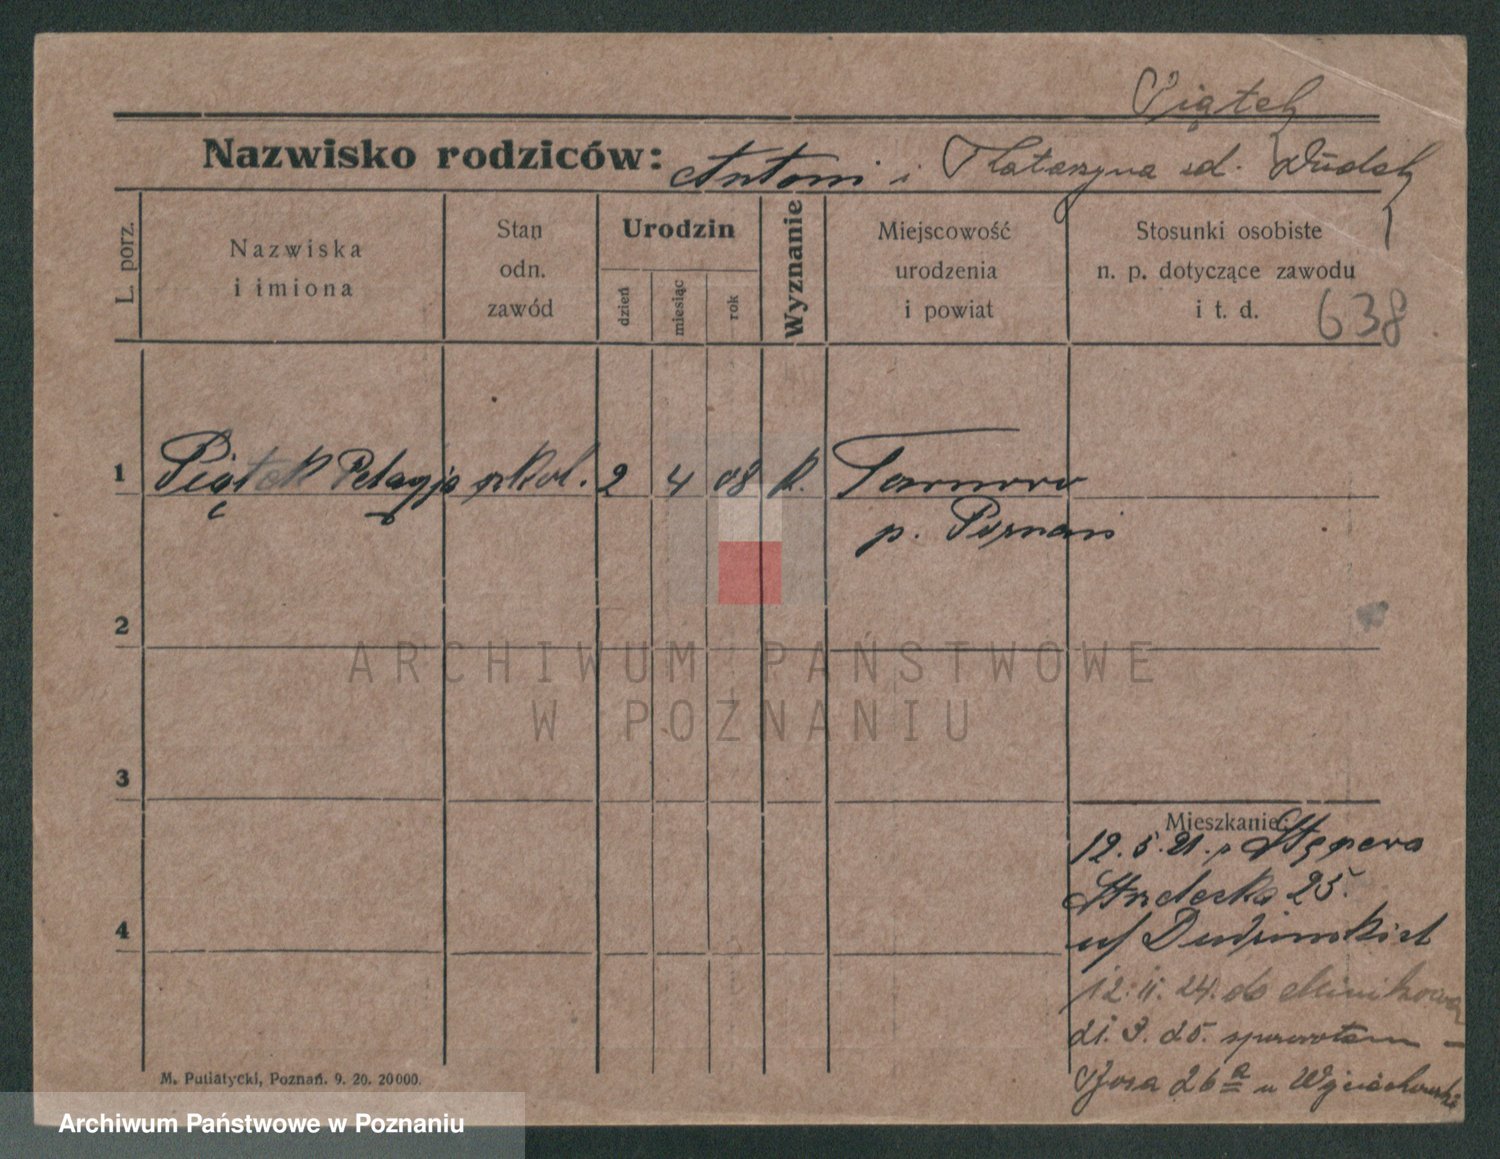 Piątek
Nazwisko rodziców: Antoni i Katarzyna
L. porz.
Nazwiska
i imiona
Stan
odn.
zawód
Urodzin
dzień
miesiąc
rok
Wyznanie
Miejscowość
urodzenia
i powiat
Stosunki osobiste
n. p. dotyczące zawodu
i t. d.
638
1 Piątek Pelagja szkol. 2 4 08 k. Tarnowo
p. Poznań
2
ARCHIWUM PAŃSTWOWE
W POZNANIU
3
4
Mieszkanie:
12.5.21. z Stęszewa
Strzelecka 25.
12.11.24. do Minikowa
21.3.25. spowrotem –
26a u Wojciechowski
M. Putiatycki, Poznań. 9. 20. 20000.
Archiwum Państwowe w Poznaniu